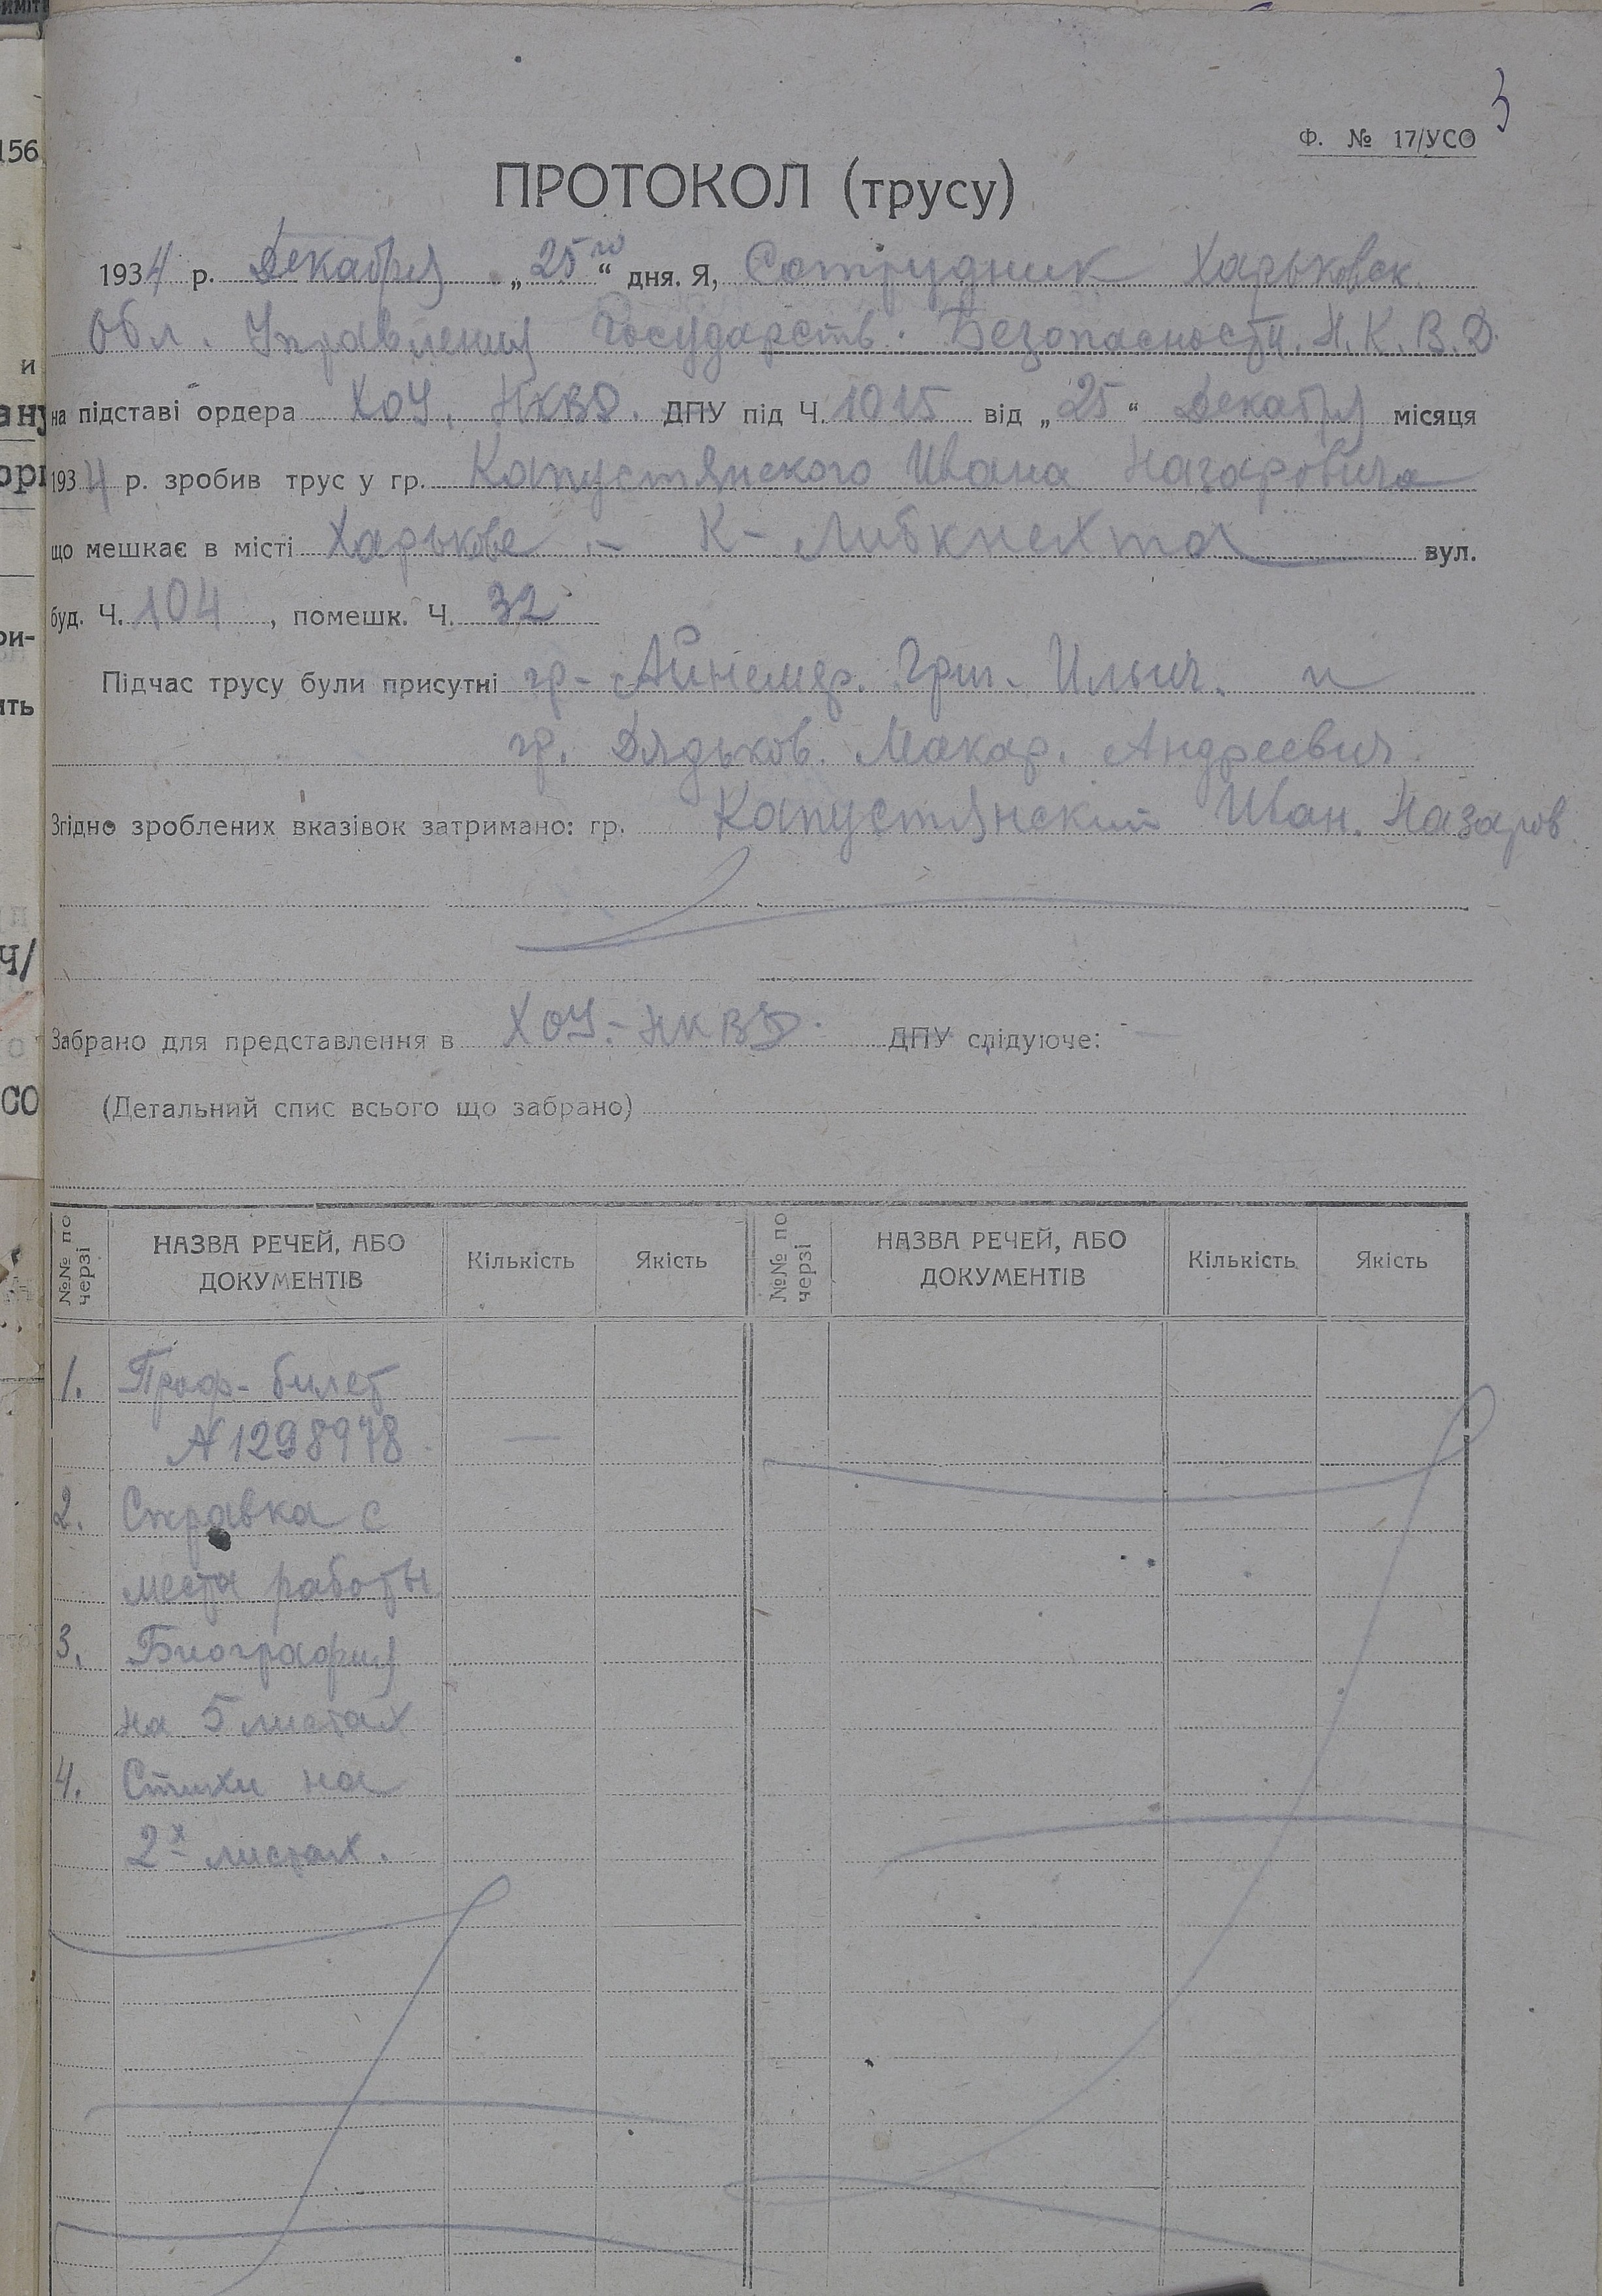 3
Ф. № 17/УСО
ПРОТОКОЛ (трусу)
1934 р. Декабря „25го“ дня. Я, Сотрудник Харьковск.
Обл. Управления Государств. Безопасности. Н.К.В.Д.
на підставі ордера ХОУ. НКВД. ДПУ під Ч. 1015 від „25“ Декабря місяця
1934 р. зробив трус у гр. Капустянского Ивана Назаровича
що мешкає в місті Харькове - К-Либкнехта вул.
буд. Ч. 104, помешк. Ч. 32
Підчас трусу були присутні гр- Григ. Ильич. и
гр. Дядьков. Макар. Андреевич.
Згідно зроблених вказівок затримано: гр. Капустянский Иван. Назаров.
Забрано для представлення в ХОУ-НКВД. ДПУ слідуюче:
(Детальний спис всього що забрано)
№№ по черзі НАЗВА РЕЧЕЙ, АБО ДОКУМЕНТІВ Кількість Якість №№ по черзі НАЗВА РЕЧЕЙ, АБО ДОКУМЕНТІВ Кількість Якість
1. Проф-билет
N 1298978. —
2. Справка с
места работы
3. Биография
на 5 листах
4. Стихи на
2х листах.
156
и
ри-
ить
Ч/
СО